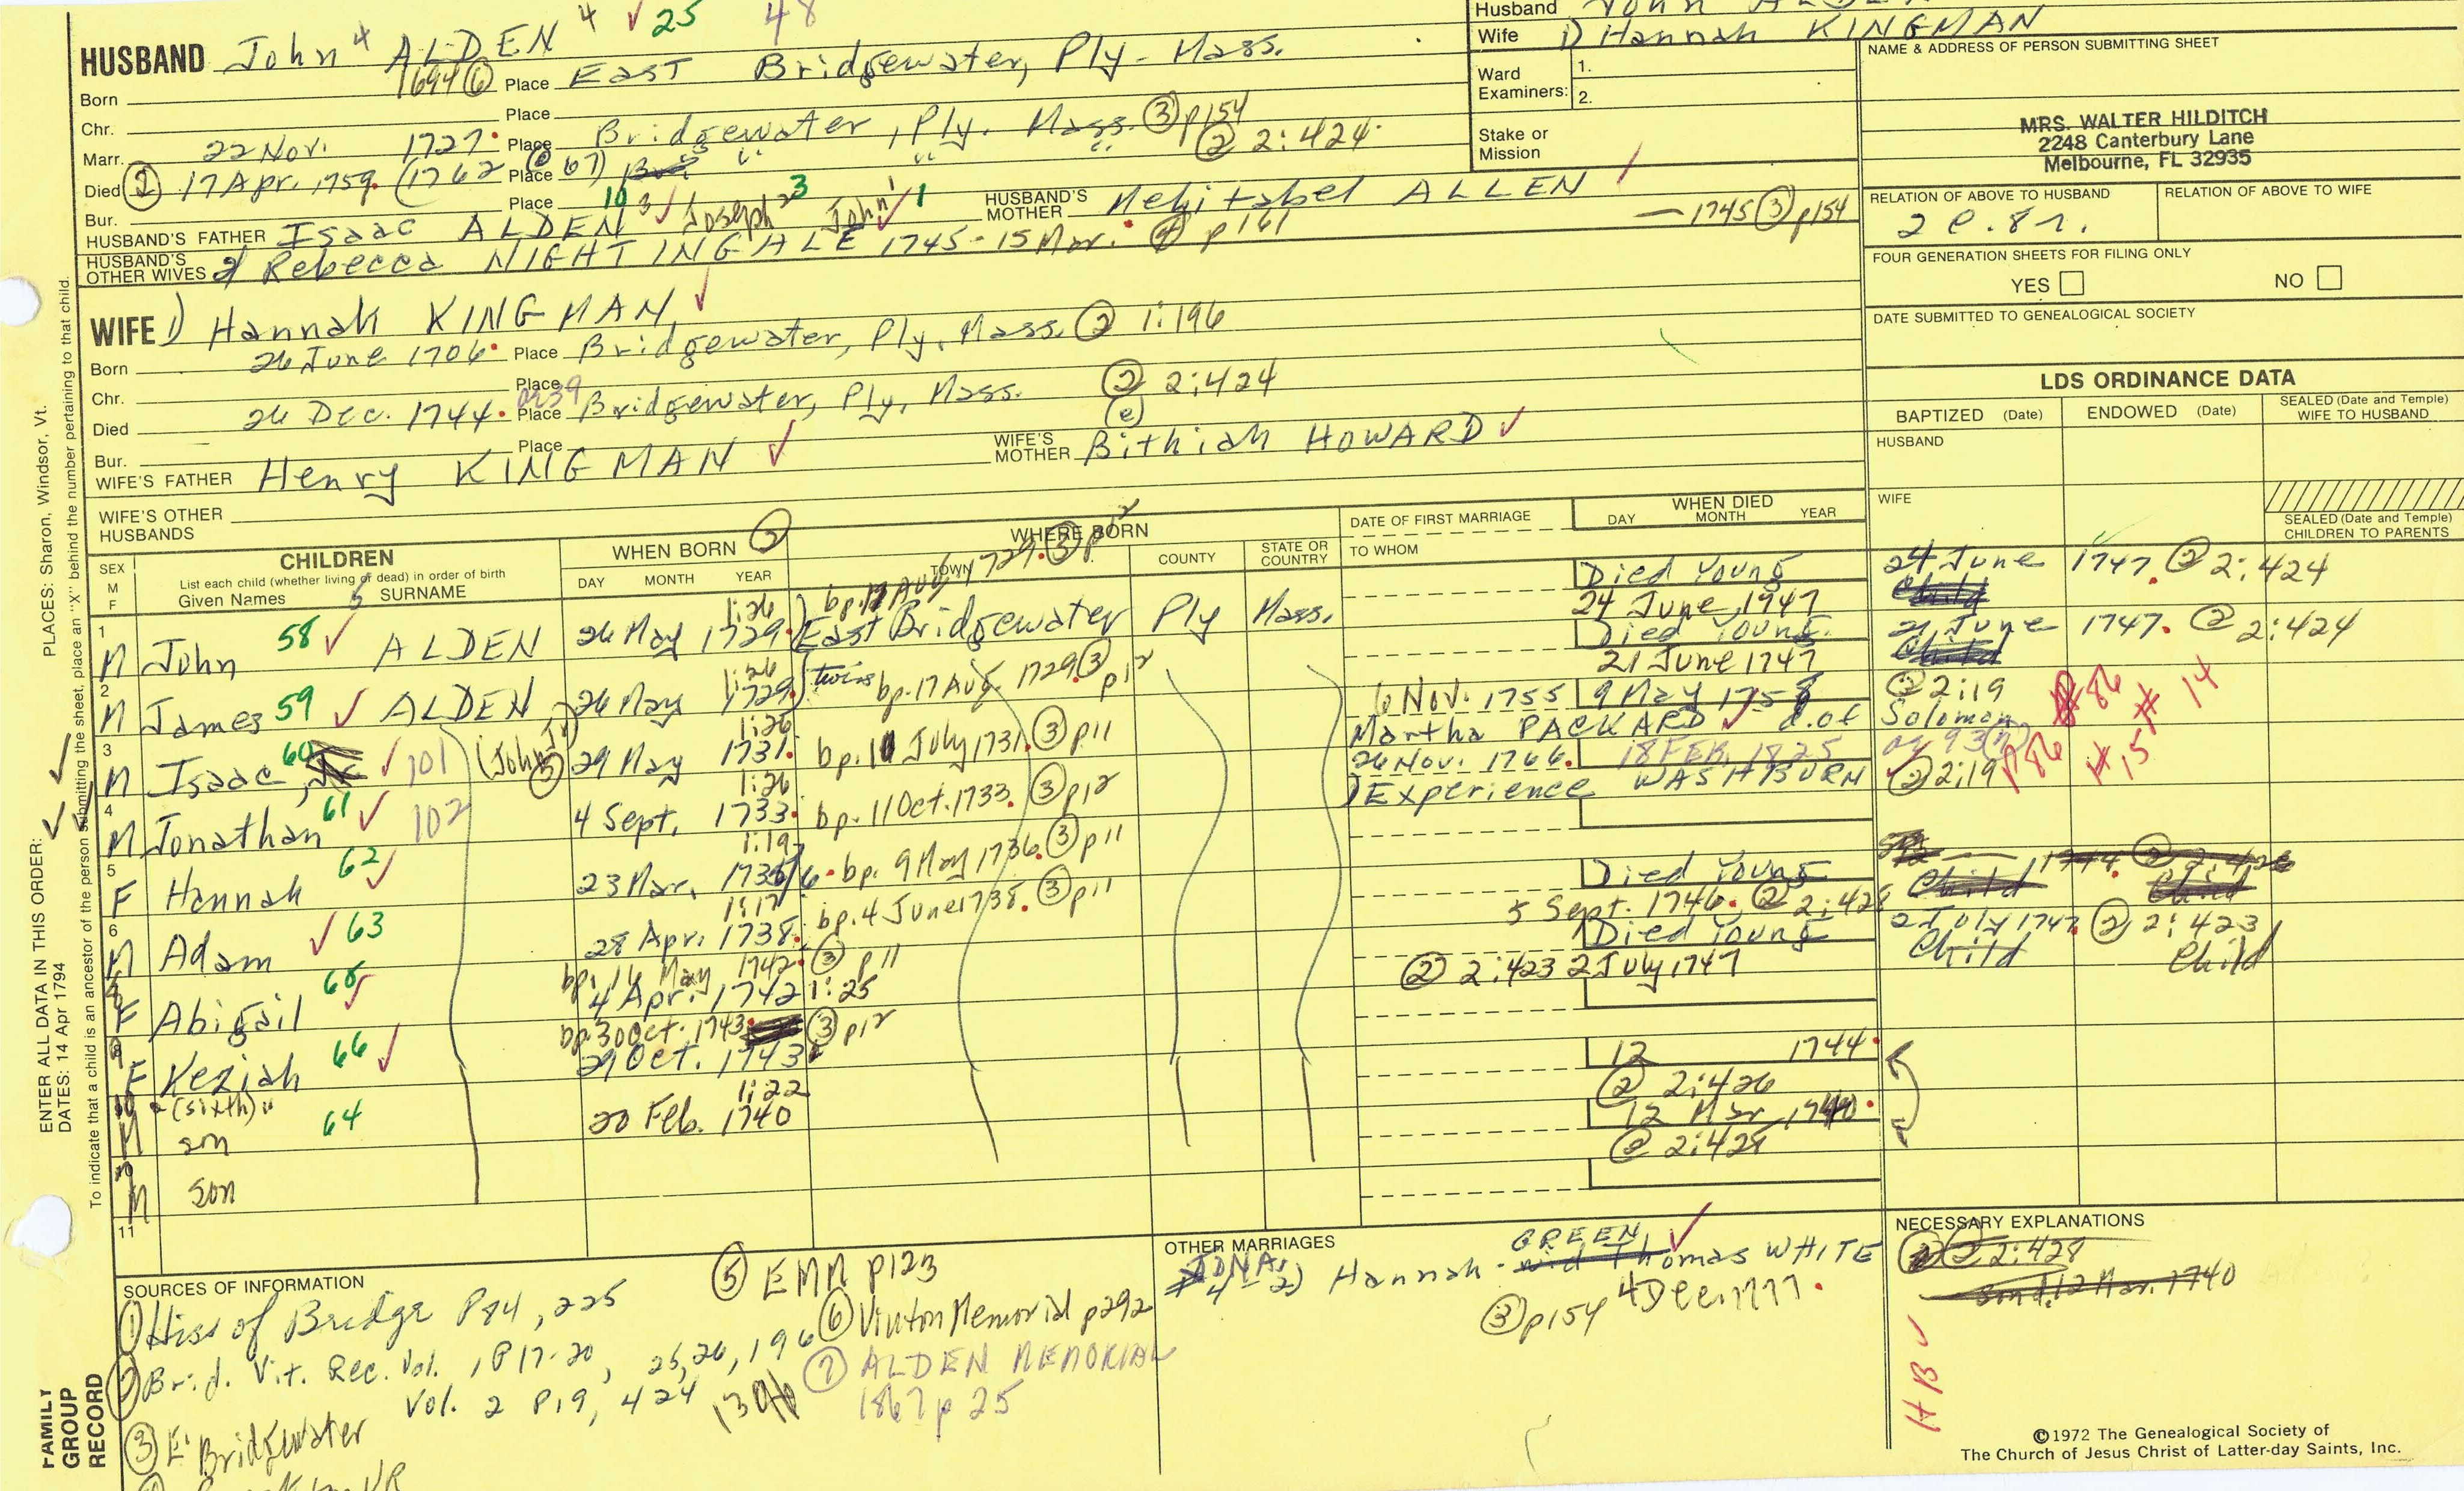 HUSBAND John 4 ALDEN 4 ✓ 25 48
Born 1694 ⑥ Place East Bridgewater, Ply - Mass.
Chr. Place
Marr. 22 Nov. 1727. Place Bridgewater, Ply. Mass. ③ p154
② 2:424.
Died ② 17 Apr. 1759. (1762 @ 67) Place " " "
Bur. Place
HUSBAND'S FATHER Isaac ALDEN 10 3 ✓ Joseph 2 3 John 1 ✓ 1 HUSBAND'S MOTHER Mehitabel ALLEN
HUSBAND'S OTHER WIVES 2) Rebecca NIGHTINGALE 1745 - 15 Mar. ④ p 161 — 1745 ③ p154
Husband John ALDEN
Wife 1) Hannah KINGMAN
Ward Examiners: 1.
2.
Stake or Mission
NAME & ADDRESS OF PERSON SUBMITTING SHEET
MRS. WALTER HILDITCH
2248 Canterbury Lane
Melbourne, FL 32935
RELATION OF ABOVE TO HUSBAND RELATION OF ABOVE TO WIFE
FOUR GENERATION SHEETS FOR FILING ONLY
YES NO
DATE SUBMITTED TO GENEALOGICAL SOCIETY
WIFE 1) Hannah KINGMAN ✓
Born 26 June 1706. Place Bridgewater, Ply, Mass. ② 1:196
Chr. Place
Died 26 Dec. 1744. or 39 Place Bridgewater, Ply, Mass. ② 2:424
(e)
Bur. Place
WIFE'S FATHER Henry KINGMAN ✓ WIFE'S MOTHER Bithiah HOWARD ✓
WIFE'S OTHER HUSBANDS
LDS ORDINANCE DATA
BAPTIZED (Date) ENDOWED (Date) SEALED (Date and Temple) WIFE TO HUSBAND
HUSBAND
WIFE
SEALED (Date and Temple) CHILDREN TO PARENTS
SEX M F
CHILDREN
List each child (whether living or dead) in order of birth
Given Names SURNAME
WHEN BORN ②
DAY MONTH YEAR
WHERE BORN
TOWN COUNTY STATE OR COUNTRY
DATE OF FIRST MARRIAGE
TO WHOM
WHEN DIED
DAY MONTH YEAR
bp. 17 Aug 1729. ③ p12
1 M John 58 ✓ ALDEN 1:26 26 May 1729. East Bridgewater Ply Mass. Died Young 24 June 1747 24 June 1747. ② 2:424 Child
2 M James 59 ✓ ALDEN 1:26 26 May 1729. twins bp. 17 Aug 1729. ③ p12 Died Young. 21 June 1747 21 June 1747. ② 2:424 Child
3 M Isaac, 60 ✓ 101 (John Jr) ⑤ 1:26 29 May 1731. bp. 11 July 1731. ③ p11 6 Nov. 1755 9 May 1758 ② 2:19
Martha PACKARD ✓ d. of Solomon #86 # 14
4 M Jonathan 61 ✓ 102 1:26 4 Sept. 1733. bp. 11 Oct. 1733. ③ p12 26 Nov. 1766. 18 FEB. 1825 or 93 (n)
1) Experience WASHBURN ② 2:19 p86 #15
5 F Hannah 62 ✓ 1:19 23 Mar. 1735/6. bp. 9 May 1736. ③ p11
6 M Adam ✓ 63 1:17 28 Apr. 1738. bp. 4 June 1738. ③ p11 Died Young 5 Sept. 1746. ② 2:428 Child Child
F Abigail 65 ✓ bp. 16 May 1742. ③ p11
4 Apr. 1742 1:25 Died Young ② 2:423 2 July 1747 2 July 1747. ② 2:423 Child Child
8 F Keziah 66 ✓ bp. 30 Oct. 1743. ③ p12
29 Oct. 1743
(sixth)
M son 64 1:22 20 Feb. 1740 12 1744.
② 2:426
M son 12 Mar 1740.
② 2:428
11
OTHER MARRIAGES
JONA. #4 - 2) Hannah - GREEN ✓ wid Thomas WHITE
③ p154 4 Dec. 1777.
NECESSARY EXPLANATIONS
② 2:428
Son d. 12 Mar. 1740
HB ✓
SOURCES OF INFORMATION
① Hiss of Bridge P84, 225
② Brid. Vit. Rec. Vol. 1 P17-20, 25, 26, 196
Vol. 2 P19, 424
③ E. Bridgewater
⑤ EMN p123
⑥ Vinton Memorial p292
⑦ ALDEN MEMORIAL
1867 p 25
FAMILY GROUP RECORD
ENTER ALL DATA IN THIS ORDER: PLACES: Sharon, Windsor, Vt.
DATES: 14 Apr 1794
To indicate that a child is an ancestor of the person submitting the sheet, place an "X" behind the number pertaining to that child.
©1972 The Genealogical Society of
The Church of Jesus Christ of Latter-day Saints, Inc.